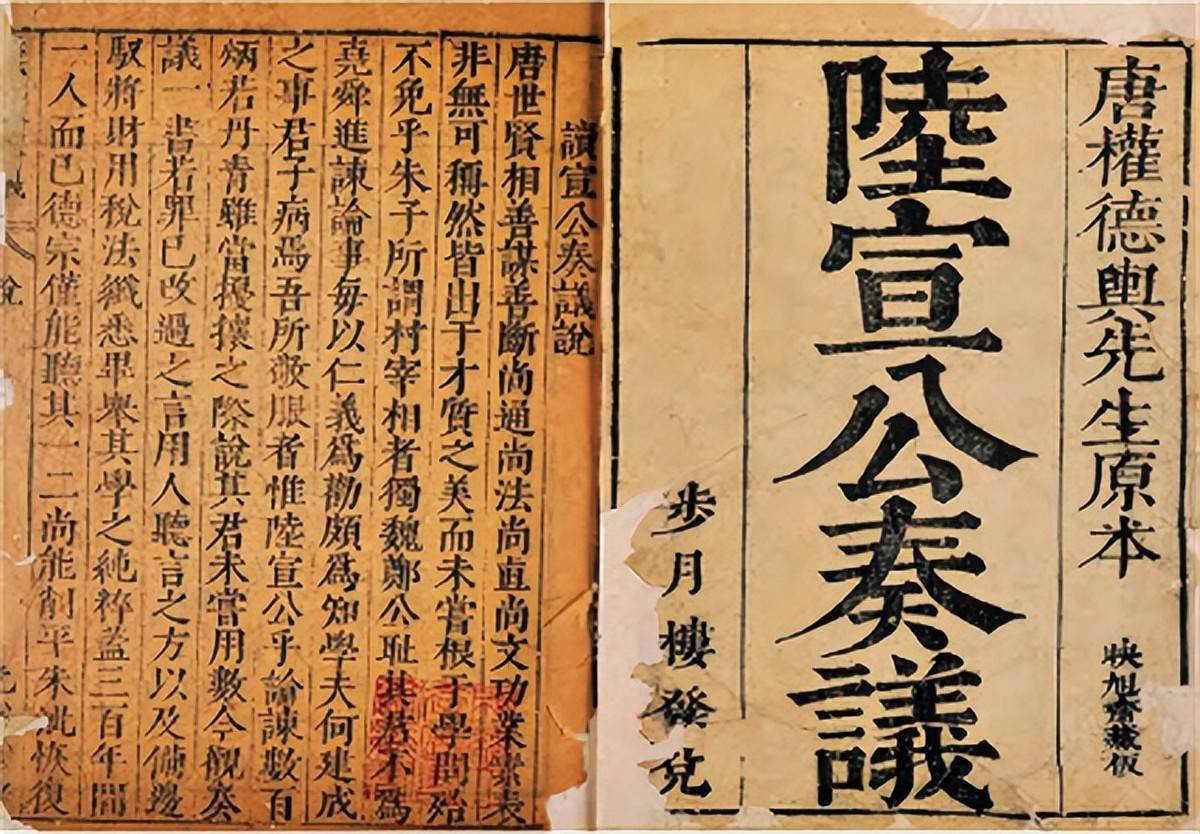 唐權德輿先生原本
映旭齋藏板
陸宣公奏議
步月樓發兌
讀宣公奏議說
唐世賢相善謀善斷尚通尚法尚直尚文功業素表
非無可稱然皆出于才質之美而未嘗根于學問殆
不免乎朱子所謂村宰相者獨魏鄭公恥其君不爲
堯舜進諫論事每以仁義爲勸頗爲知學夫何建成
之事君子病焉吾所敬服者惟陸宣公乎論諫數百
炳若丹青雖當擾攘之際說其君未嘗用數今觀奏
議一書若罪已改過之言用人聽言之方以及備邊
馭將財用稅法纖悉畢舉其學之純粹蓋三百年間
一人而已德宗僅能聽其一二尚能削平朱泚恢復
說